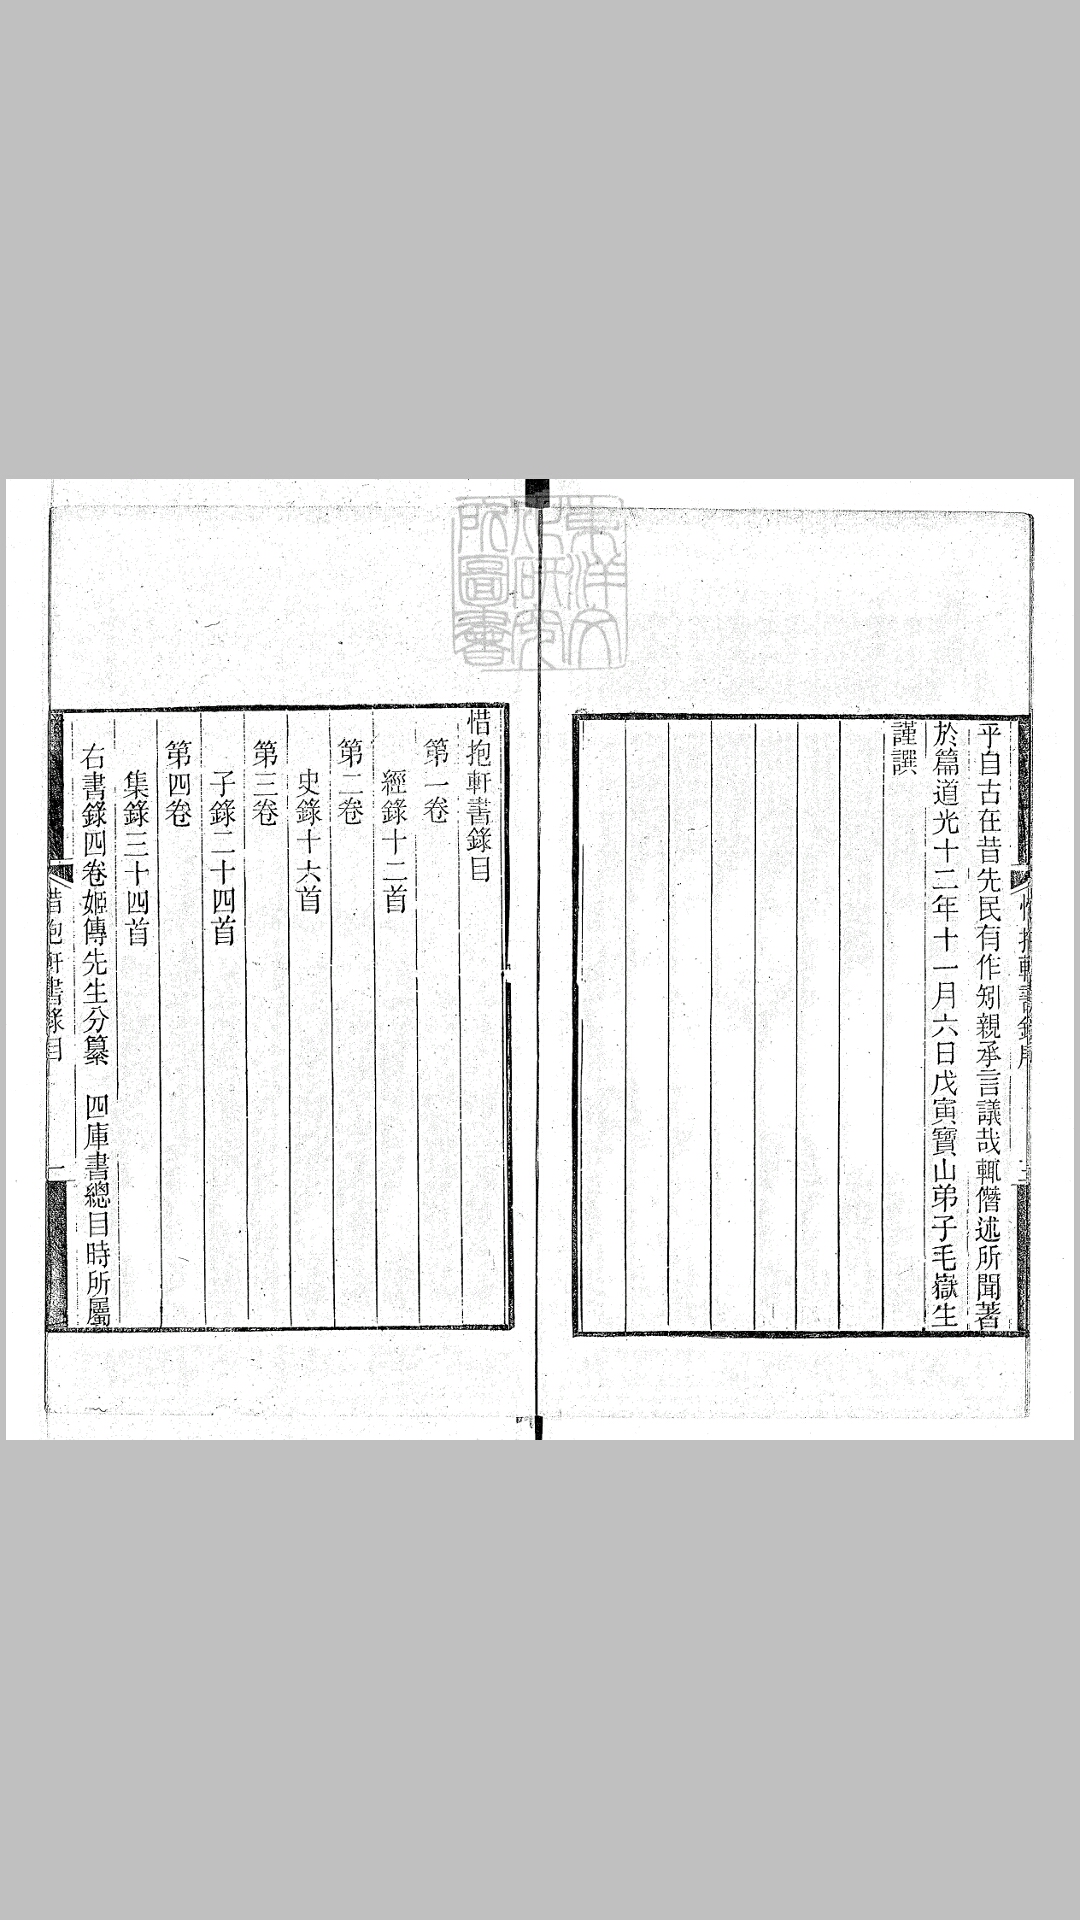 乎自古在昔先民有作矧親承言議哉輒僭述所聞著
於篇道光十二年十一月六日戊寅寶山弟子毛嶽生
謹譔
惜抱軒書錄目
第一卷
經錄十二首
第二卷
史錄十六首
第三卷
子錄二十四首
第四卷
集錄三十四首
右書錄四卷姬傳先生分纂　四庫書總目時所屬
惜抱軒書錄目
一